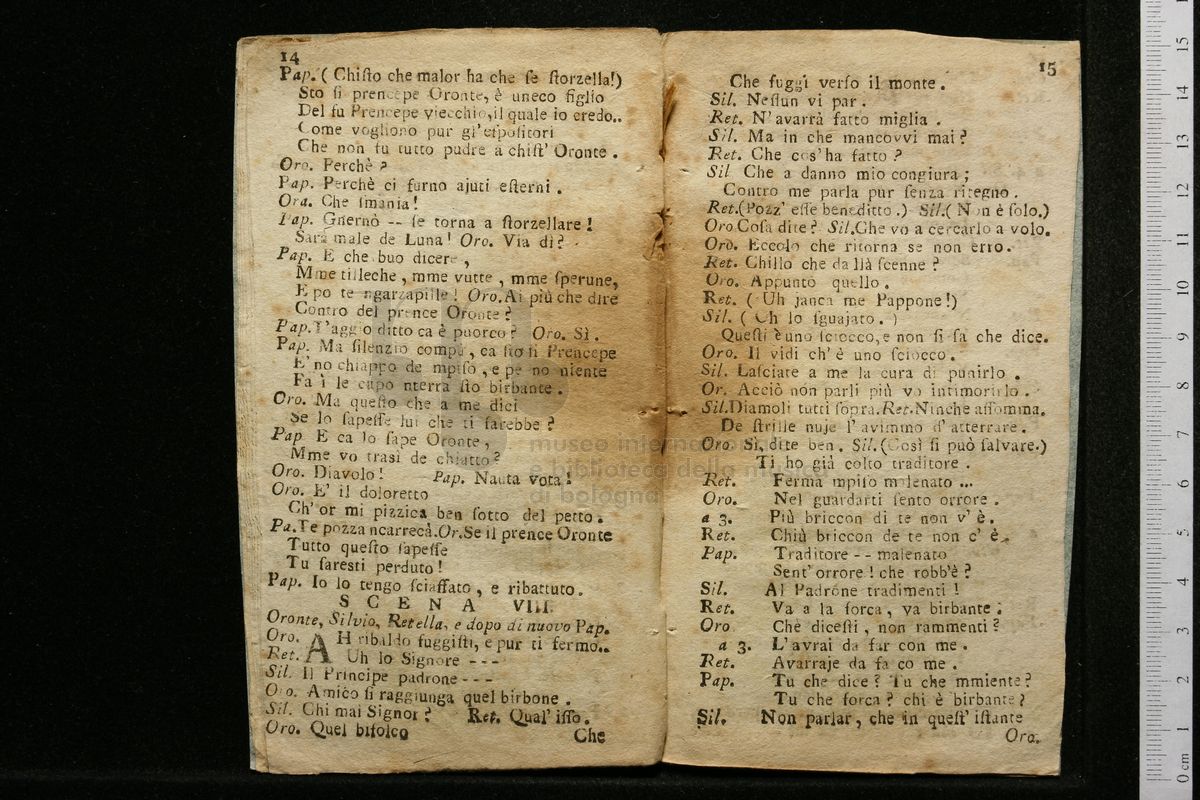 14
Pap. ( Chiſto che malor ha che ſe ſtorzella!)
Sto ſi prencepe Oronte, è uneco figlio
Del fu Prencepe viecchio, il quale io credo..
Come vogliono pur gl'eſpoſitori
Che non fu tutto pudre a chiſt' Oronte .
Oro. Perchè ?
Pap. Perchè ci furno ajuti eſterni .
Oro. Che ſmania!
Pap. Gnernò -- ſe torna a ſtorzellare !
Sarà male de Luna! Oro. Via dì?
Pap. E che buo dicere ,
Mme tilleche , mme vutte , mme ſperune,
E po te ngarzapille! Oro. Ai più che dire
Contro del prence Oronte ?
Pap. T'aggio ditto ca è puorco? Oro. Sì .
Pap. Ma ſilenzio compà , ca ſto ſi Prencepe
E' no chiappo de mpiſo , e pe no niente
Fa ì le capo nterra ſto birbante .
Oro. Ma queſto che a me dici
Se lo ſapeſſe lui che ti farebbe ?
Pap. E ca lo ſape Oronte ,
Mme vo traſì de chiatto ?
Oro. Diavolo! Pap. Nauta vota!
Oro. E' il doloretto
Ch' or mi pizzica ben ſotto del petto .
Pa. Te pozza ncarrecà. Or. Se il prence Oronte
Tutto queſto ſapeſſe
Tu fareſti perduto!
Pap. Io lo tengo ſciaffato , e ribattuto.
SCENA VIII.
Oronte, Silvio, Retella, e dopo di nuovo Pap.
Oro. AH ribaldo fuggiſti, e pur ti fermo..
Ret. Uh lo Signore ---
Sil. Il Principe padrone ---
Oro. Amico ſi raggiunga quel birbone .
Sil. Chi mai Signor? Ret. Qual' iſſo .
Oro. Quel bifolco
Che
15
Che fuggì verſo il monte .
Sil. Neſſun vi par .
Ret. N'avarrà fatto miglia .
Sil. Ma in che mancovvi mai ?
Ret. Che cos' ha fatto ?
Sil. Che a danno mio congiura ;
Contro me parla pur ſenza ritegno .
Ret. (Pozz' eſſe beneditto.) Sil. ( Non è ſolo.)
Oro Coſa dite? Sil. Che vo a cercarlo a volo.
Oro. Eccolo che ritorna se non erro .
Ret. Chillo che da llà ſcenne ?
Oro. Appunto quello .
Ret. ( Uh janca me Pappone!)
Sil. ( Uh lo ſguajato. )
Queſti è uno ſciocco, e non ſi ſa che dice.
Oro. Il vidi ch' è uno ſciocco .
Sil. Laſciate a me la cura di punirlo .
Or. Acciò non parli più vo intimorirlo .
Sil. Diamoli tutti ſopra. Ret. Ninche aſſomma.
De ſtrille nuje l' avimmo d' atterrare .
Oro. Sì, dite ben . Sil. (Così ſi può ſalvare.)
Ti ho già colto traditore .
Ret. Ferma mpiſo malenato ...
Oro. Nel guardarti ſento orrore .
a 3. Più briccon di te non v' è .
Ret. Chiù briccon de te non c' è.
Pap. Traditore -- malenato
Sent' orrore ! che robb' è ?
Sil. Al Padrone tradimenti !
Ret. Va a la forca , va birbante .
Oro Che diceſti , non rammenti ?
a 3. L'avrai da far con me .
Ret. Avarraje da fa co me .
Pap. Tu che dice ? Tu che mmiente ?
Tu che forca ? chi è birbante ?
Sil. Non parlar, che in queſt' iſtante
Oro.
museo internazionale
e biblioteca della musica
di bologna
15 14 13 12 11 10 9 8 7 6 5 4 3 2 1 0 cm